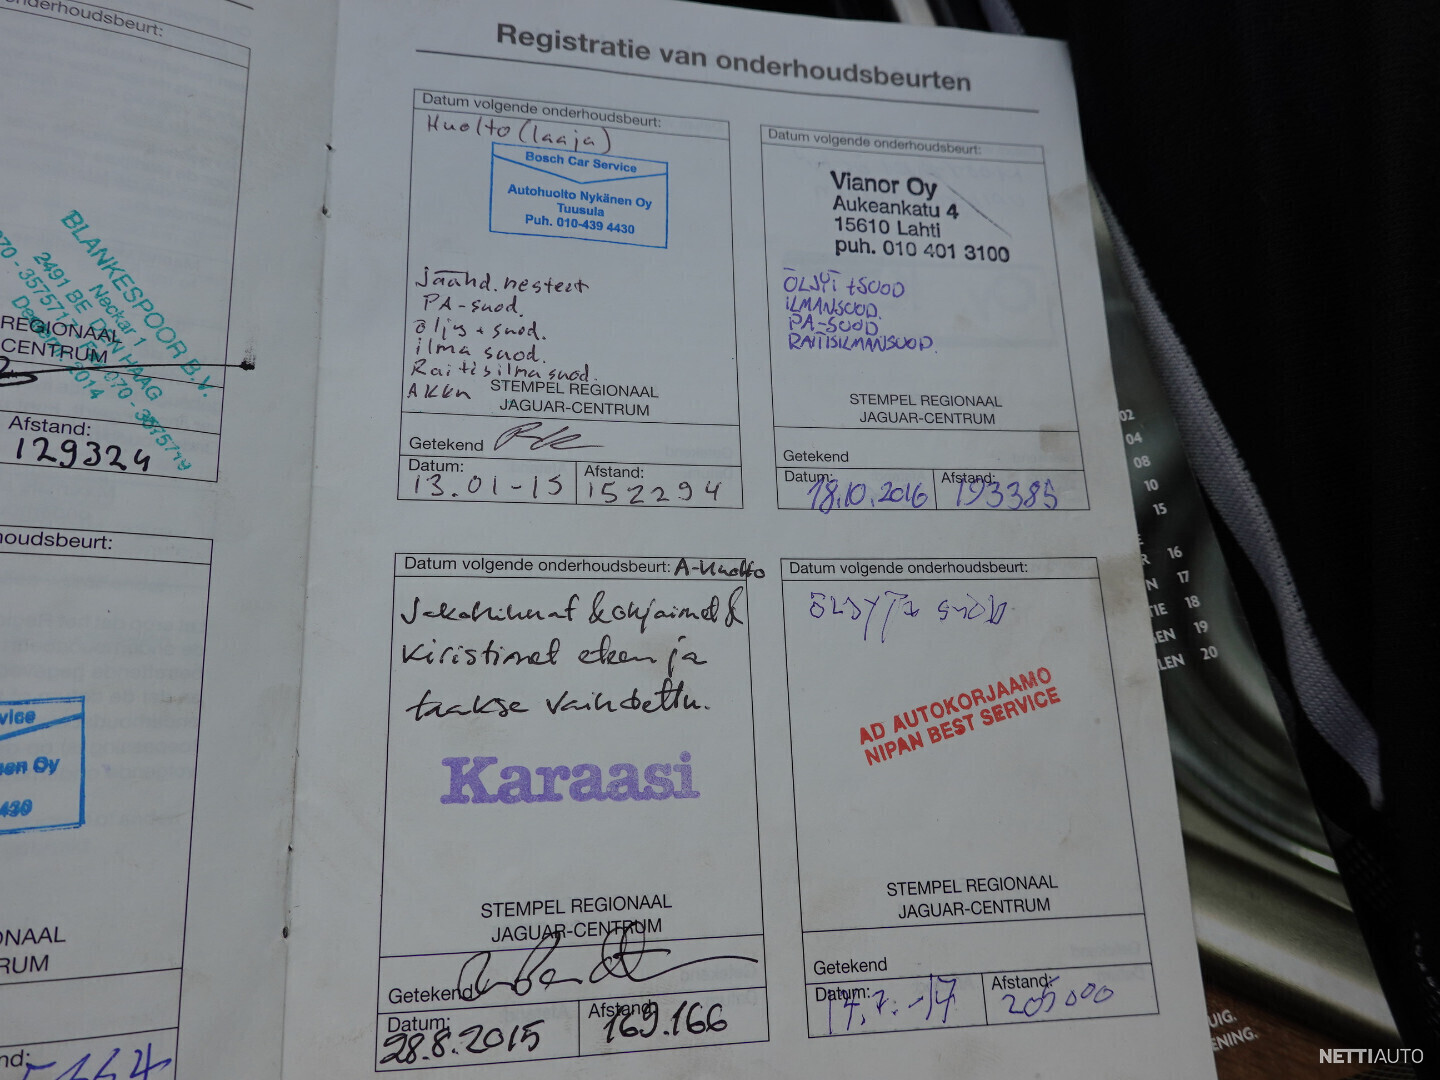 onderhoudsbeurt:
BLANKESPOOR B.V.
Neckar 1
2491 BE DEN HAAG
REGIONAAL
CENTRUM
Afstand:
129324
houdsbeurt:
Registratie van onderhoudsbeurten
Datum volgende onderhoudsbeurt:
Huolto (laaja)
Bosch Car Service
Autohuolto Nykänen Oy
Tuusula
Puh. 010-439 4430
Jäähd. nesteet
PA-suod.
öljy + suod.
ilma suod.
Raitisilma suod.
AKKn
STEMPEL REGIONAAL
JAGUAR-CENTRUM
Getekend
Datum:
13.01-15
Afstand:
152294
Datum volgende onderhoudsbeurt:
Vianor Oy
Aukeankatu 4
15610 Lahti
puh. 010 401 3100
ÖLJYT+SUOD
ILMANSUOD.
PA-SUOD
RAITISILMANSUOD.
STEMPEL REGIONAAL
JAGUAR-CENTRUM
Getekend
Datum:
18.10.2016
Afstand:
193385
Datum volgende onderhoudsbeurt: A-Huolto
Jakohihnat & ohjaimet &
kiristimet eteen ja
taakse vaihdettu.
Karaasi
STEMPEL REGIONAAL
JAGUAR-CENTRUM
Getekend
Datum:
28.8.2015
Afstand:
169.166
Datum volgende onderhoudsbeurt:
AD AUTOKORJAAMO
NIPAN BEST SERVICE
STEMPEL REGIONAAL
JAGUAR-CENTRUM
Getekend
Datum:
Afstand:
205000
ONAAL
RUM
02
04
08
10
15
16
17
18
19
20
NETTIAUTO